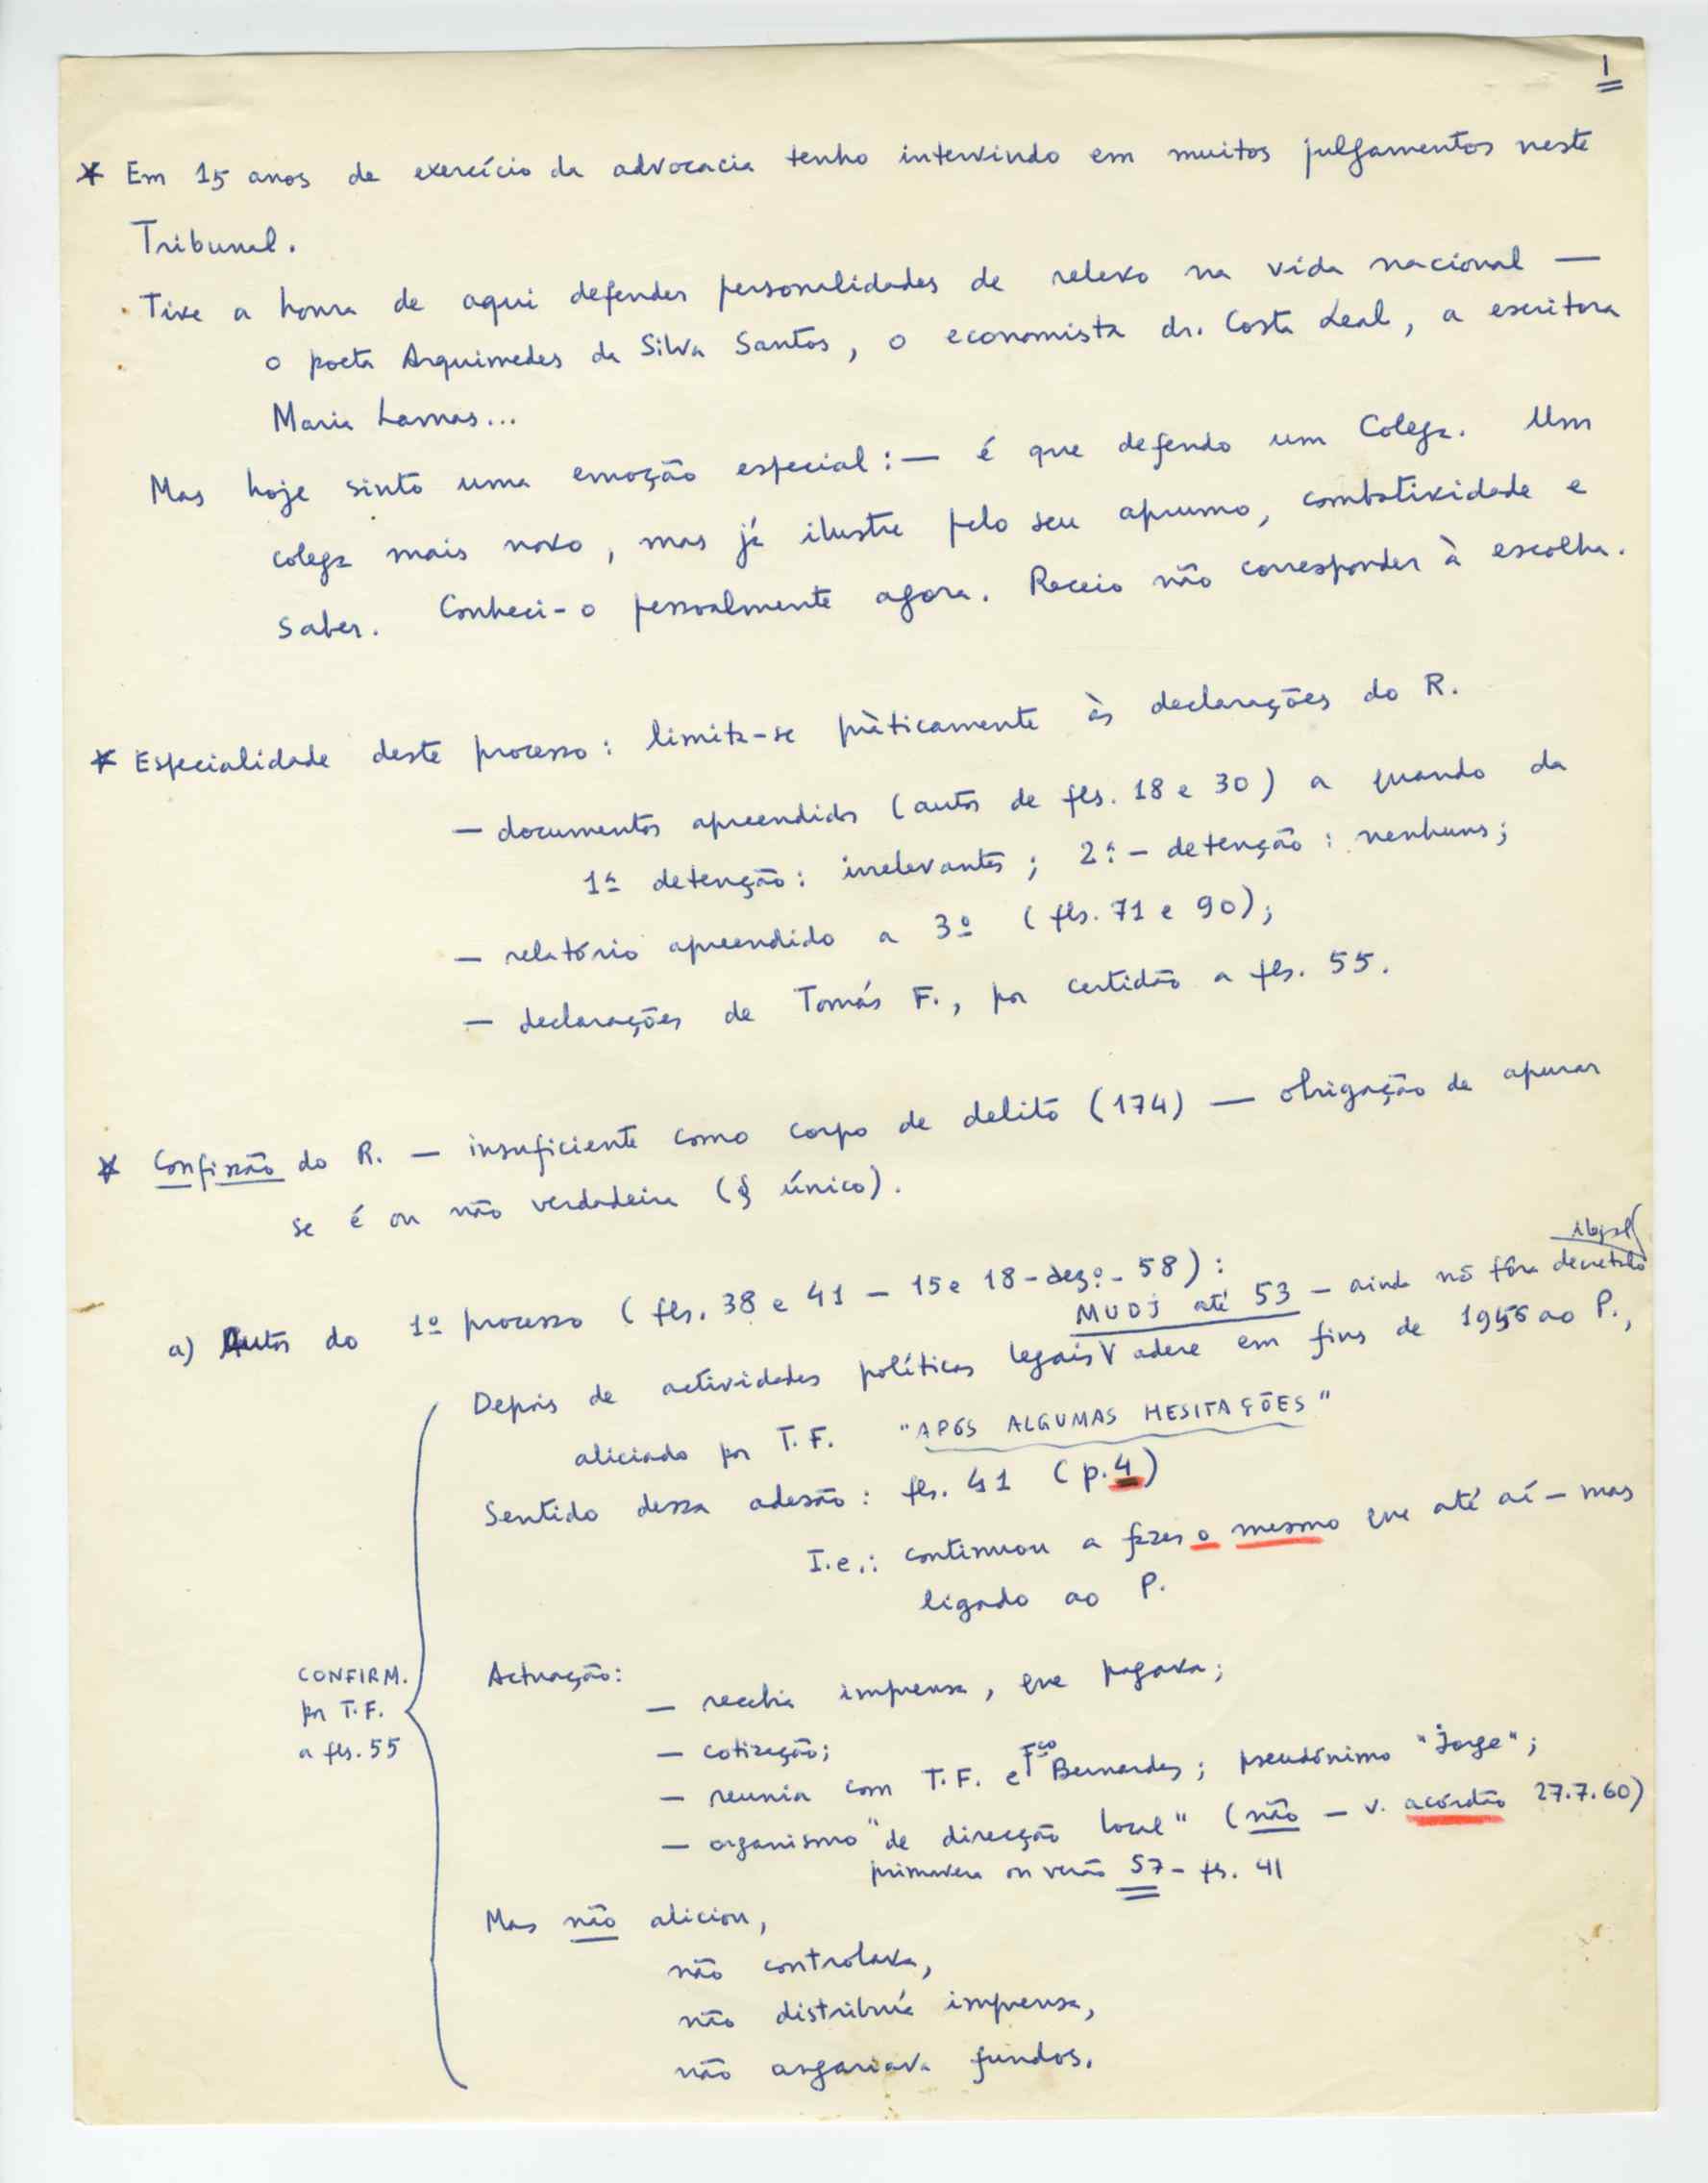 1
* Em 15 anos de exercício da advocacia tenho intervindo em muitos julgamentos neste
Tribunal.
Tive a honra de aqui defender personalidades de relevo na vida nacional —
o poeta Arquimedes da Silva Santos, o economista dr. Costa Leal, a escritora
Maria Lamas...
Mas hoje sinto uma emoção especial: — é que defendo um Colega. Um
colega mais novo, mas já ilustre pelo seu aprumo, combatividade e
saber. Conheci-o pessoalmente agora. Receio não corresponder à escolha.
* Especialidade deste processo: limita-se pràticamente às declarações do R.
— documentos apreendidos (autos de fls. 18 e 30) a quando da
1ª detenção: irrelevantes; 2ª - detenção: nenhuns;
— relatório apreendido a 3º (fls. 71 e 90);
— declarações de Tomás F., por certidão a fls. 55.
* Confissão do R. — insuficiente como corpo de delito (174) — obrigação de apurar
se é ou não verdadeira (§ único).
ilegal
a) Autos do 1º processo (fls. 38 e 41 - 15 e 18-dezº-58):
MUDJ até 53 - ainda nõ fôra decretado
Depois de actividades políticas legais V adere em fins de 1956 ao P.,
aliciado por T.F. "APÓS ALGUMAS HESITAÇÕES"
Sentido dessa adesão: fls. 41 (p.4)
I.e.: continuou a fazer o mesmo que até aí - mas
ligado ao P.
CONFIRM.
por T.F.
a fls. 55
Actuação:
— recebia imprensa, que pagava;
— cotização;
— reunia com T.F. e Fco Bernardes; pseudónimo "Jorge";
— organismo "de direcção local" (não - v. acórdão 27.7.60)
primavera ou verão 57 - fls. 41
Mas não aliciou,
não controlava,
não distribuía imprensa,
não angariava fundos.